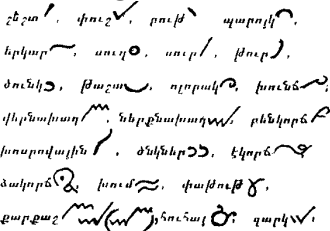 շեշտ, փուշ, բութ՝ պարոյկ
երկար, սուղ, սուր, թուր
ծունկ, թաշտ, ոլորակ, խունճ,
վերնախաղ, ներքնախաղ, բենկորճ
խոսրովային, ծնկներ, էկորճ
ձակորճ, խում, փաթութ,
քարքաշ (), հուհայ, զարկ,